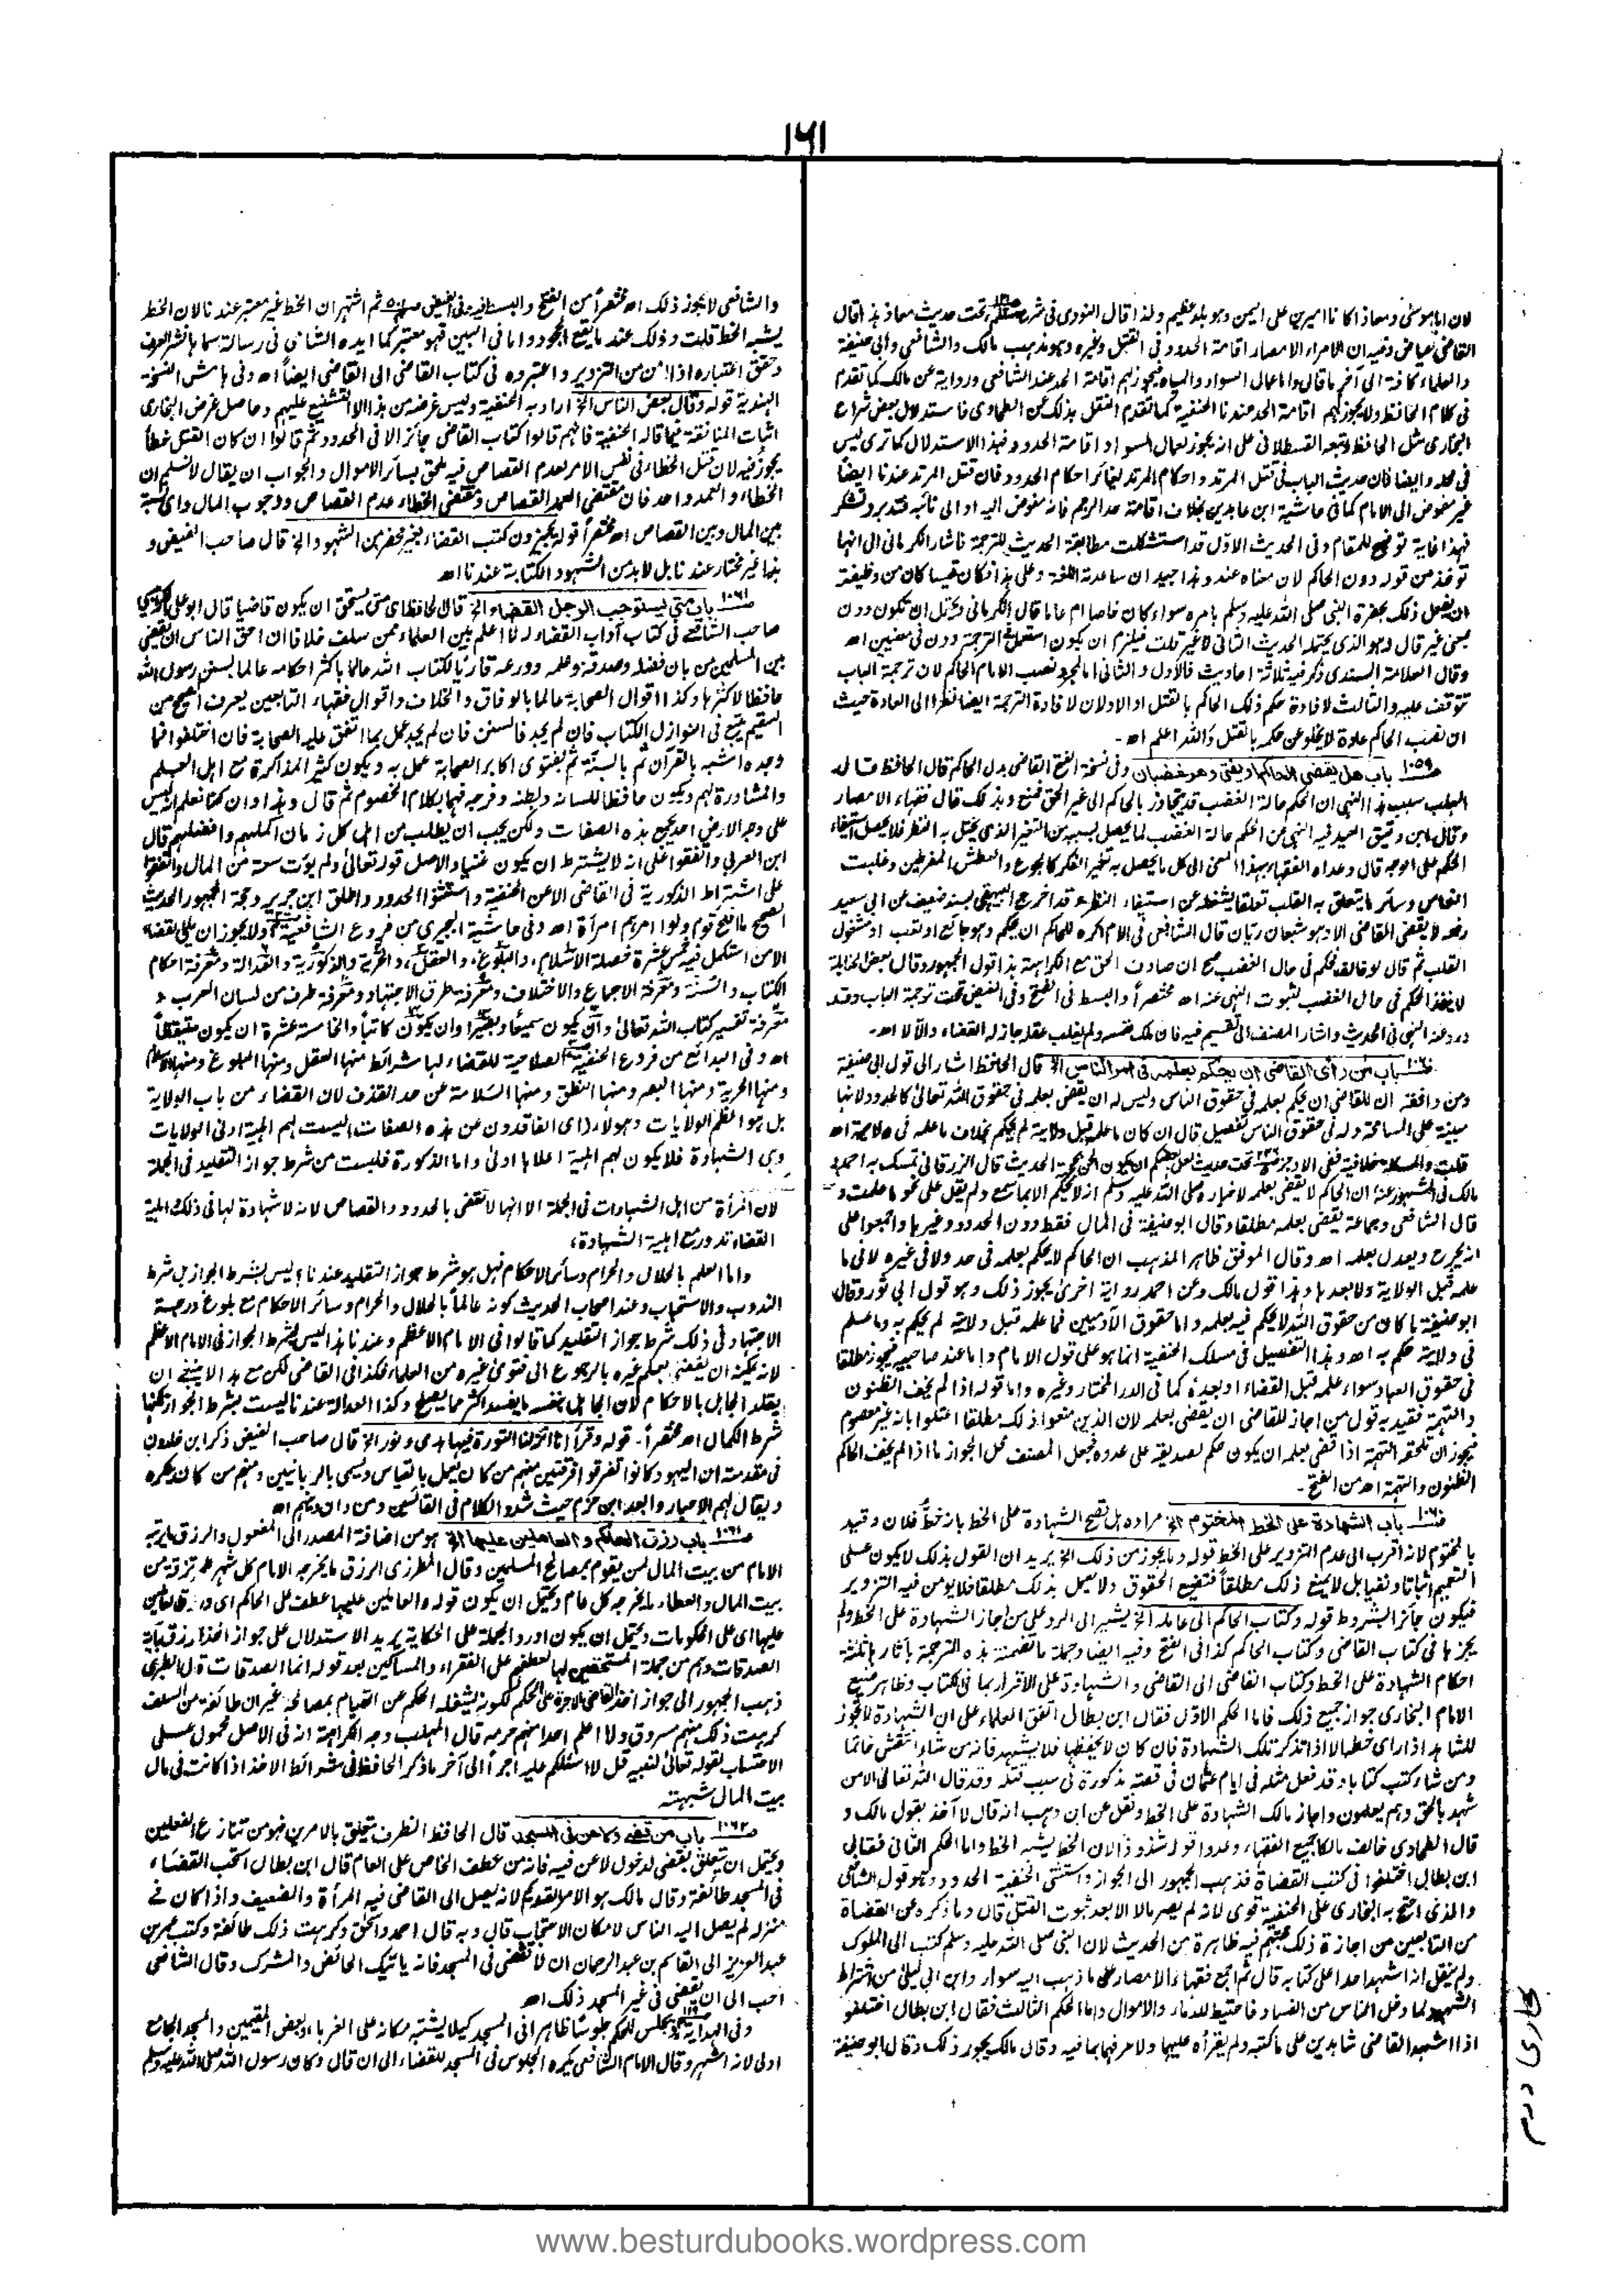 ١٦١
لان ابا موسى ومعاذا كانا اميرين على اليمن وهو بلد عظيم ولذا قال النووي في شرح مسلم تحت حديث معاذ هذا قال
القاضي عياض وفيه ان للامراء الامصار اقامة الحدود في القتل وغيره وهو مذهب مالك والشافعي وابي حنيفة
والعلماء كافة الى آخر ما قال واما عمال السواد والمياه فيجوز لهم اقامة الحد عند الشافعي ورواية عن مالك كما تقدم
في كلام الحافظ ولا يجوز لهم اقامة الحد عندنا الحنفية كما تقدم النقل بذلك عن الطحاوي فاستدلال بعض شراح
البخاري مثل الحافظ وتبعه القسطلاني على انه يجوز لعمال السواد اقامة الحدود فهذا الاستدلال كما ترى ليس
في محله وايضا فان حديث الباب في قتل المرتد واحكام المرتد يغائر احكام الحدود فان قتل المرتد عندنا ايضا
غير مفوض الى الامام كما في حاشية ابن عابدين بخلاف اقامة حد الرجم فانه مفوض اليه او الى نائبه فتدبر وتشكر
فهذا غاية توضيح للمقام وفي الحديث الاول قد استشكلت مطابقة الحديث للترجمة فاشار الكرماني الى انها
توخذ من قوله دون الحاكم لان معناه عند وهذا جيد ان ساعدته اللغة وعلى هذا فكان قيسا كان من وظيفته
ان يفعل ذلك بحضرة النبي صلى الله عليه وسلم بامره سواء كان خاصا ام عاما قال الكرماني ويحتمل ان تكون دون
بمعنى غير قال وهو الذي يحتمله الحديث الثاني لا غير قلت فيلزم ان يكون استعمل في الترجمة دون في معنيين اه
وقال العلامة السندي ذكر فيه ثلاثة احاديث فالاول والثاني اما لمجرد نصب الامام الحاكم لان ترجمة الباب
تتوقف عليه والثالث لافادة حكم ذلك الحاكم بالقتل او الاولان لافادة الترجمة ايضا نظرا الى العادة حيث
ان نصب الحاكم عادة لا يخلو عن حكم بالقتل والله اعلم اه۔
١٠٥٩ باب هل يقضي الحاكم او يفتي وهو غضبان وفي نسخة الفتح القاضي بدل الحاكم قال الحافظ قال
المهلب سبب هذا النهي ان الحكم حالة الغضب قد يتجاوز بالحاكم الى غير الحق فمنع وبذلك قال فقهاء الامصار
وقال ابن دقيق العيد فيه النهي عن الحكم حالة الغضب لما يحصل بسببه من التغير الذي يختل به النظر فلا يحصل استيفاء
الحكم على الوجه قال وعداه الفقهاء بهذا المعنى الى كل ما يحصل به تغير الفكر كالجوع والعطش المفرطين وغلبة
النعاس وسائر ما يتعلق به القلب تعلقا يشغله عن استيفاء النظر وقد اخرج البيهقي بسند ضعيف عن ابي سعيد
رفعه لا يقضي القاضي الا وهو شبعان ريان قال الشافعي في الام اكره للحاكم ان يحكم وهو جائع او تعب او مشغول
القلب ثم قال لو خالف فحكم في حال الغضب صح ان صادف الحق مع الكراهة هذا قول الجمهور وقال بعض الحنابلة
لا ينفذ الحكم في حال الغضب لثبوت النهي عنه اه مختصرا والبسط في الفتح وفي الفيض تحت ترجمة الباب وقد
ورد عنه النهي في الحديث واشار المصنف الى تقسيم فيه فان ملك نفسه ولم يغلب عقله جاز له القضاء والا لا اه۔
١٠٦٠ باب من رأى القاضي ان يحكم بعلمه في امر الناس الخ قال الحافظ اشار الى قول ابي حنيفة
ومن وافقه ان للقاضي ان يحكم بعلمه في حقوق الناس وليس له ان يقضي بعلمه في حقوق الله تعالى كالحدود لانها
مبنية على المسامحة وله في حقوق الناس تفصيل قال ان كان ما علمه قبل ولايته لم يحكم بخلاف ما علمه في ولايته اه
قلت والمسئلة خلافية ففي الاوجز تحت حديث لعل بعضكم ان يكون الحن بحجته الحديث قال الزرقاني تمسك به احمد و
مالك في المشهور عنه ان الحاكم لا يقضي بعلمه لاخباره صلى الله عليه وسلم انه لا يحكم الا بما سمع ولم يقل على نحو ما علمت و
قال الشافعي وجماعة يقضي بعلمه مطلقا وقال ابو حنيفة في المال فقط دون الحدود وغيرها واجمعوا على
انه يجرح ويعدل بعلمه اه وقال الموفق ظاهر المذهب ان الحاكم لا يحكم بعلمه في حد ولا في غيره لا في ما
علمه قبل الولاية ولا بعدها وهذا قول مالك وعن احمد رواية اخرى يجوز ذلك وهو قول ابي ثور وقال
ابو حنيفة ما كان من حقوق الله لا يحكم فيه بعلمه واما حقوق الآدميين فما علمه قبل ولايته لم يحكم به وما علم
في ولايته حكم به اه وهذا التفصيل في مسلك الحنفية انما هو على قول الامام واما عند صاحبيه فيجوز مطلقا
في حقوق العباد سواء علمه قبل القضاء او بعده كما في الدر المختار وغيره واما قوله اذا لم يخف الظنون
والتهمة فقيد به قول من اجاز للقاضي ان يقضي بعلمه لان الذين منعوا ذلك مطلقا اعتلوا بانه غير معصوم
فيجوز ان تلحقه التهمة اذا قضى بعلمه ان يكون حكم لصديقه على عدوه فجعل المصنف محل الجواز ما اذا لم يخف الحاكم
الظنون والتهمة اه من الفتح۔
١٠٦٠ باب الشهادة على الخط المختوم الخ مراده هل تصح الشهادة على الخط بانه خط فلان وقيد
بالمختوم لانه اقرب الى عدم التزوير على الخط قوله وما يجوز من ذلك الخ يريد ان القول بذلك لا يكون على
التعميم اثباتا ونفيا بل لا يمنع ذلك مطلقا فتضيع الحقوق ولا يعمل بذلك مطلقا فلا يومن فيه التزوير
فيكون جائزا بشروط قوله وكتاب الحاكم الى عامله الخ يشير الى الرد على من اجاز الشهادة على الخط ولم
يجزها في كتاب القاضي وكتاب الحاكم كذا في الفتح وفيه ايضا وجملة ما تضمنته هذه الترجمة بآثارها ثلثة
احكام الشهادة على الخط وكتاب القاضي الى القاضي والشهادة على الاقرار بما في الكتاب وظاهر صنيع
الامام البخاري جواز جميع ذلك فاما الحكم الاول فقال ابن بطال اتفق العلماء على ان الشهادة لا تجوز
للشاهد اذا راى خطه الا اذا تذكر تلك الشهادة فان كان لا يحفظها فلا يشهد فانه من شاء انتقش خاتما
ومن شاء كتب كتابا وقد فعل مثله في ايام عثمان في قصة مذكورة في سبب قتله وقد قال الله تعالى الا من
شهد بالحق وهم يعلمون واجاز مالك الشهادة على الخط ونقل عن ابن وهب انه قال لا آخذ بقول مالك و
قال الطحاوي خالف مالكا جميع الفقهاء وعدوا قوله شذوذا لان الخط يشبه الخط واما الحكم الثاني فقال
ابن بطال اختلفوا في كتب القضاة فذهب الجمهور الى الجواز واستثنى الحنفية الحدود وهو قول الشافعي
والذي احتج به البخاري على الحنفية قوي لانه لم يصر مالا الا بعد ثبوت القتل قال وما ذكره عن القضاة
من التابعين من اجازة ذلك حجتهم فيه ظاهرة من الحديث لان النبي صلى الله عليه وسلم كتب الى الملوك
ولم ينقل انه اشهد احدا على كتابه قال ثم اجمع فقهاء الامصار على ما ذهب اليه سوار وابن ابي ليلى من اشتراط
الشهود لما دخل الناس من الفساد فاحتيط للدماء والاموال واما الحكم الثالث فقال ابن بطال اختلفوا
اذا اشهد القاضي شاهدين على ما كتبه ولم يقرأه عليهما ولا عرفهما بما فيه وقال مالك يجوز ذلك وقال ابو حنيفة
والشافعي لا يجوز ذلك اه مختصرا من الفتح والبسط فيه وفي الفيض ثم اشتهر ان الخط غير معتبر عندنا لان الخط
يشبه الخط قلت وذلك عند ما يقع الجحود واما في البين فهو معتبر كما ايده الشامي في رسالة سماها نشر العرف
وحقق اعتباره اذا امن من التزوير واعتبروه في كتاب القاضي الى القاضي ايضا اه وفي هامش النسخة
الهندية قوله وقال بعض الناس الخ اراد به الحنفية وليس غرضه من هذا الا التشنيع عليهم وحاصل غرض البخاري
اثبات المناقضة فيما قاله الحنفية فانهم قالوا كتاب القاضي جائز الا في الحدود ثم قالوا ان كان القتل خطأ
يجوز فيه لان قتل الخطاء في نفس الامر لعدم القصاص فيه ملحق بسائر الاموال والجواب ان يقال لا نسلم ان
الخطاء والعمد واحد فان مقتضى العمد القصاص ومقتضى الخطاء عدم القصاص ووجوب المال واي نسبة
بين المال وبين القصاص اه مختصرا قوله يجيزون كتب القضاء بغير محضر من الشهود الخ قال صاحب الفيض و
هذا غير مختار عندنا بل لابد من الشهود للكتابة عندنا اه
١٠٦١ باب متى يستوجب الرجل القضاء الخ قال الحافظ اي متى يستحق ان يكون قاضيا قال ابو علي الكرابيسي
صاحب الشافعي في كتاب آداب القضاء له لا اعلم بين العلماء ممن سلف خلافا ان احق الناس ان يقضي
بين المسلمين من بان فضله وصدقه وعلمه وورعه قارئا لكتاب الله عالما باكثر احكامه عالما بسنن رسول الله
حافظا لاكثرها وكذا اقوال الصحابة عالما بالوفاق والخلاف واقوال فقهاء التابعين يعرف الصحيح من
السقيم يتتبع في النوازل الكتاب فان لم يجد فالسنن فان لم يجد عمل بما اتفق عليه الصحابة فان اختلفوا فما
وجده اشبه بالقرآن ثم بالسنة ثم بفتوى اكابر الصحابة عمل به ويكون كثير المذاكرة مع اهل العلم
والمشاورة لهم ويكون حافظا للسانه وبطنه وفرجه فهما بكلام الخصوم ثم قال وهذا وان كنا نعلم انه ليس
على وجه الارض احد يجمع هذه الصفات ولكن يجب ان يطلب من اهل كل زمان اكملهم وافضلهم قال
ابن العربي واتفقوا على انه لا يشترط ان يكون غنيا والاصل قوله تعالى ولم يؤت سعة من المال واتفقوا
على اشتراط الذكورية في القاضي الا عن الحنفية واستثنوا الحدود واطلق ابن جرير وحجة الجمهور الحديث
الصحيح ما افلح قوم ولوا امرهم امرأة اه وفي حاشية البجيرمي من فروع الشافعية ولا يجوز ان يلي القضاء
الا من استكمل فيه خمس عشرة خصلة الاسلام، والبلوغ، والعقل، والحرية والذكورية والعدالة ومعرفة احكام
الكتاب والسنة ومعرفة الاجماع والاختلاف ومعرفة طرق الاجتهاد ومعرفة طرف من لسان العرب و
معرفة تفسير كتاب الله تعالى وان يكون سميعا وبصيرا وان يكون كاتبا والخامسة عشرة ان يكون متيقظا
اه وفي البدائع من فروع الحنفية الصلاحية للقضاء لها شرائط منها العقل ومنها البلوغ ومنها الاسلام
ومنها الحرية ومنها البصر ومنها النطق ومنها السلامة عن حد القذف لان القضاء من باب الولاية
بل هو اعظم الولايات وهولاء (اى الفاقدون عن هذه الصفات) ليست لهم اهلية ادنى الولايات
وهي الشهادة فلا يكون لهم اهلية اعلاها اولى واما الذكورة فليست من شرط جواز التقليد في الجملة
لان المرأة من اهل الشهادات في الجملة الا انها لا تقضي بالحدود والقصاص لانه لا شهادة لها في ذلك اهلية
القضاء تدور مع اهلية الشهادة؛
واما العلم بالحلال والحرام وسائر الاحكام فهل هو شرط جواز التقليد عندنا؟ ليس بشرط الجواز بل شرط
الندوب والاستحباب وعند اصحاب الحديث كونه عالما بالحلال والحرام وسائر الاحكام مع بلوغ درجة
الاجتهاد في ذلك شرط جواز التقليد كما قالوا في الامام الاعظم وعندنا هذا ليس بشرط الجواز في الامام الاعظم
لانه يمكنه ان يقضي بعلم غيره بالرجوع الى فتوى غيره من العلماء فكذا في القاضي لكن مع هذا لا ينبغي ان
يقلد الجاهل بالاحكام لان الجاهل بنفسه ما يفسد اكثر مما يصلح وكذا العدالة عندنا ليست بشرط الجواز لكنها
شرط الكمال اه مختصرا۔ قوله وقرأ انا انزلنا التورة فيها هدى ونور الخ قال صاحب الفيض ذكر ابن خلدون
في مقدمته ان اليهود كانوا تفرقوا فرقتين منهم من كان يعمل بالقياس ويسمى بالربانيين ومنهم من كان ينكره
ويقال لهم الاحبار وابعد ابن حزم حيث شدد الكلام في القائسين ومن دان دينهم اه
١٠٦١ باب رزق الحاكم والعاملين عليها الخ هو من اضافة المصدر الى المفعول والرزق ما يرتبه
الامام من بيت المال لمن يقوم بمصالح المسلمين وقال المطرزي الرزق ما يخرجه الامام كل شهر للمرتزقة من
بيت المال والعطاء ما يخرجه كل عام ويحتمل ان يكون قوله والعاملين عليها عطف على الحاكم اى ورزق العاملين
عليها اى على الحكومات ويحتمل ان يكون اورد الجملة على الحكاية يريد الاستدلال على جواز اخذ الرزق بآية
الصدقات وهم من جملة المستحقين لها لعطفهم على الفقراء والمساكين بعد قوله انما الصدقات قال الطبري
ذهب الجمهور الى جواز اخذ القاضي الاجرة على الحكم لكونه يشغله الحكم عن القيام بمصالحه غير ان طائفة من السلف
كرهت ذلك منهم مسروق ولا اعلم احدا منهم حرمه قال المهلب وجه الكراهة انه في الاصل محمول على
الاحتساب لقوله تعالى لنبيه قل لا اسئلكم عليه اجرا الى آخر ما ذكر الحافظ في شرائط الاخذ اذا كانت في مال
بيت المال شبهة۔
١٠٦٢ باب من قضى ولاعن في المسجد قال الحافظ الظرف يتعلق بالامرين فهو من تنازع الفعلين
ويحتمل ان يتعلق بقضى لدخول لاعن فيه فانه من عطف الخاص على العام قال ابن بطال استحب القضاء
في المسجد طائفة وقال مالك هو الامر القديم لانه يصل الى القاضي فيه المرأة والضعيف واذا كان في
منزله لم يصل اليه الناس لامكان الاحتجاب قال وبه قال احمد واسحق وكرهت ذلك طائفة وكتب عمر بن
عبد العزيز الى القاسم بن عبد الرحمان ان لا تقضي في المسجد فانه ياتيك الحائض والمشرك وقال الشافعي
احب الى ان يقضي في غير المسجد ذلك اه
وفي الهداية ويجلس للحكم جلوسا ظاهرا في المسجد كيلا يشتبه مكانه على الغرباء وبعض المقيمين والمسجد الجامع
اولى لانه اشهر وقال الامام الشافعي يكره الجلوس في المسجد للقضاء الى ان قال وكان رسول الله صلى الله عليه وسلم
www.besturdubooks.wordpress.com